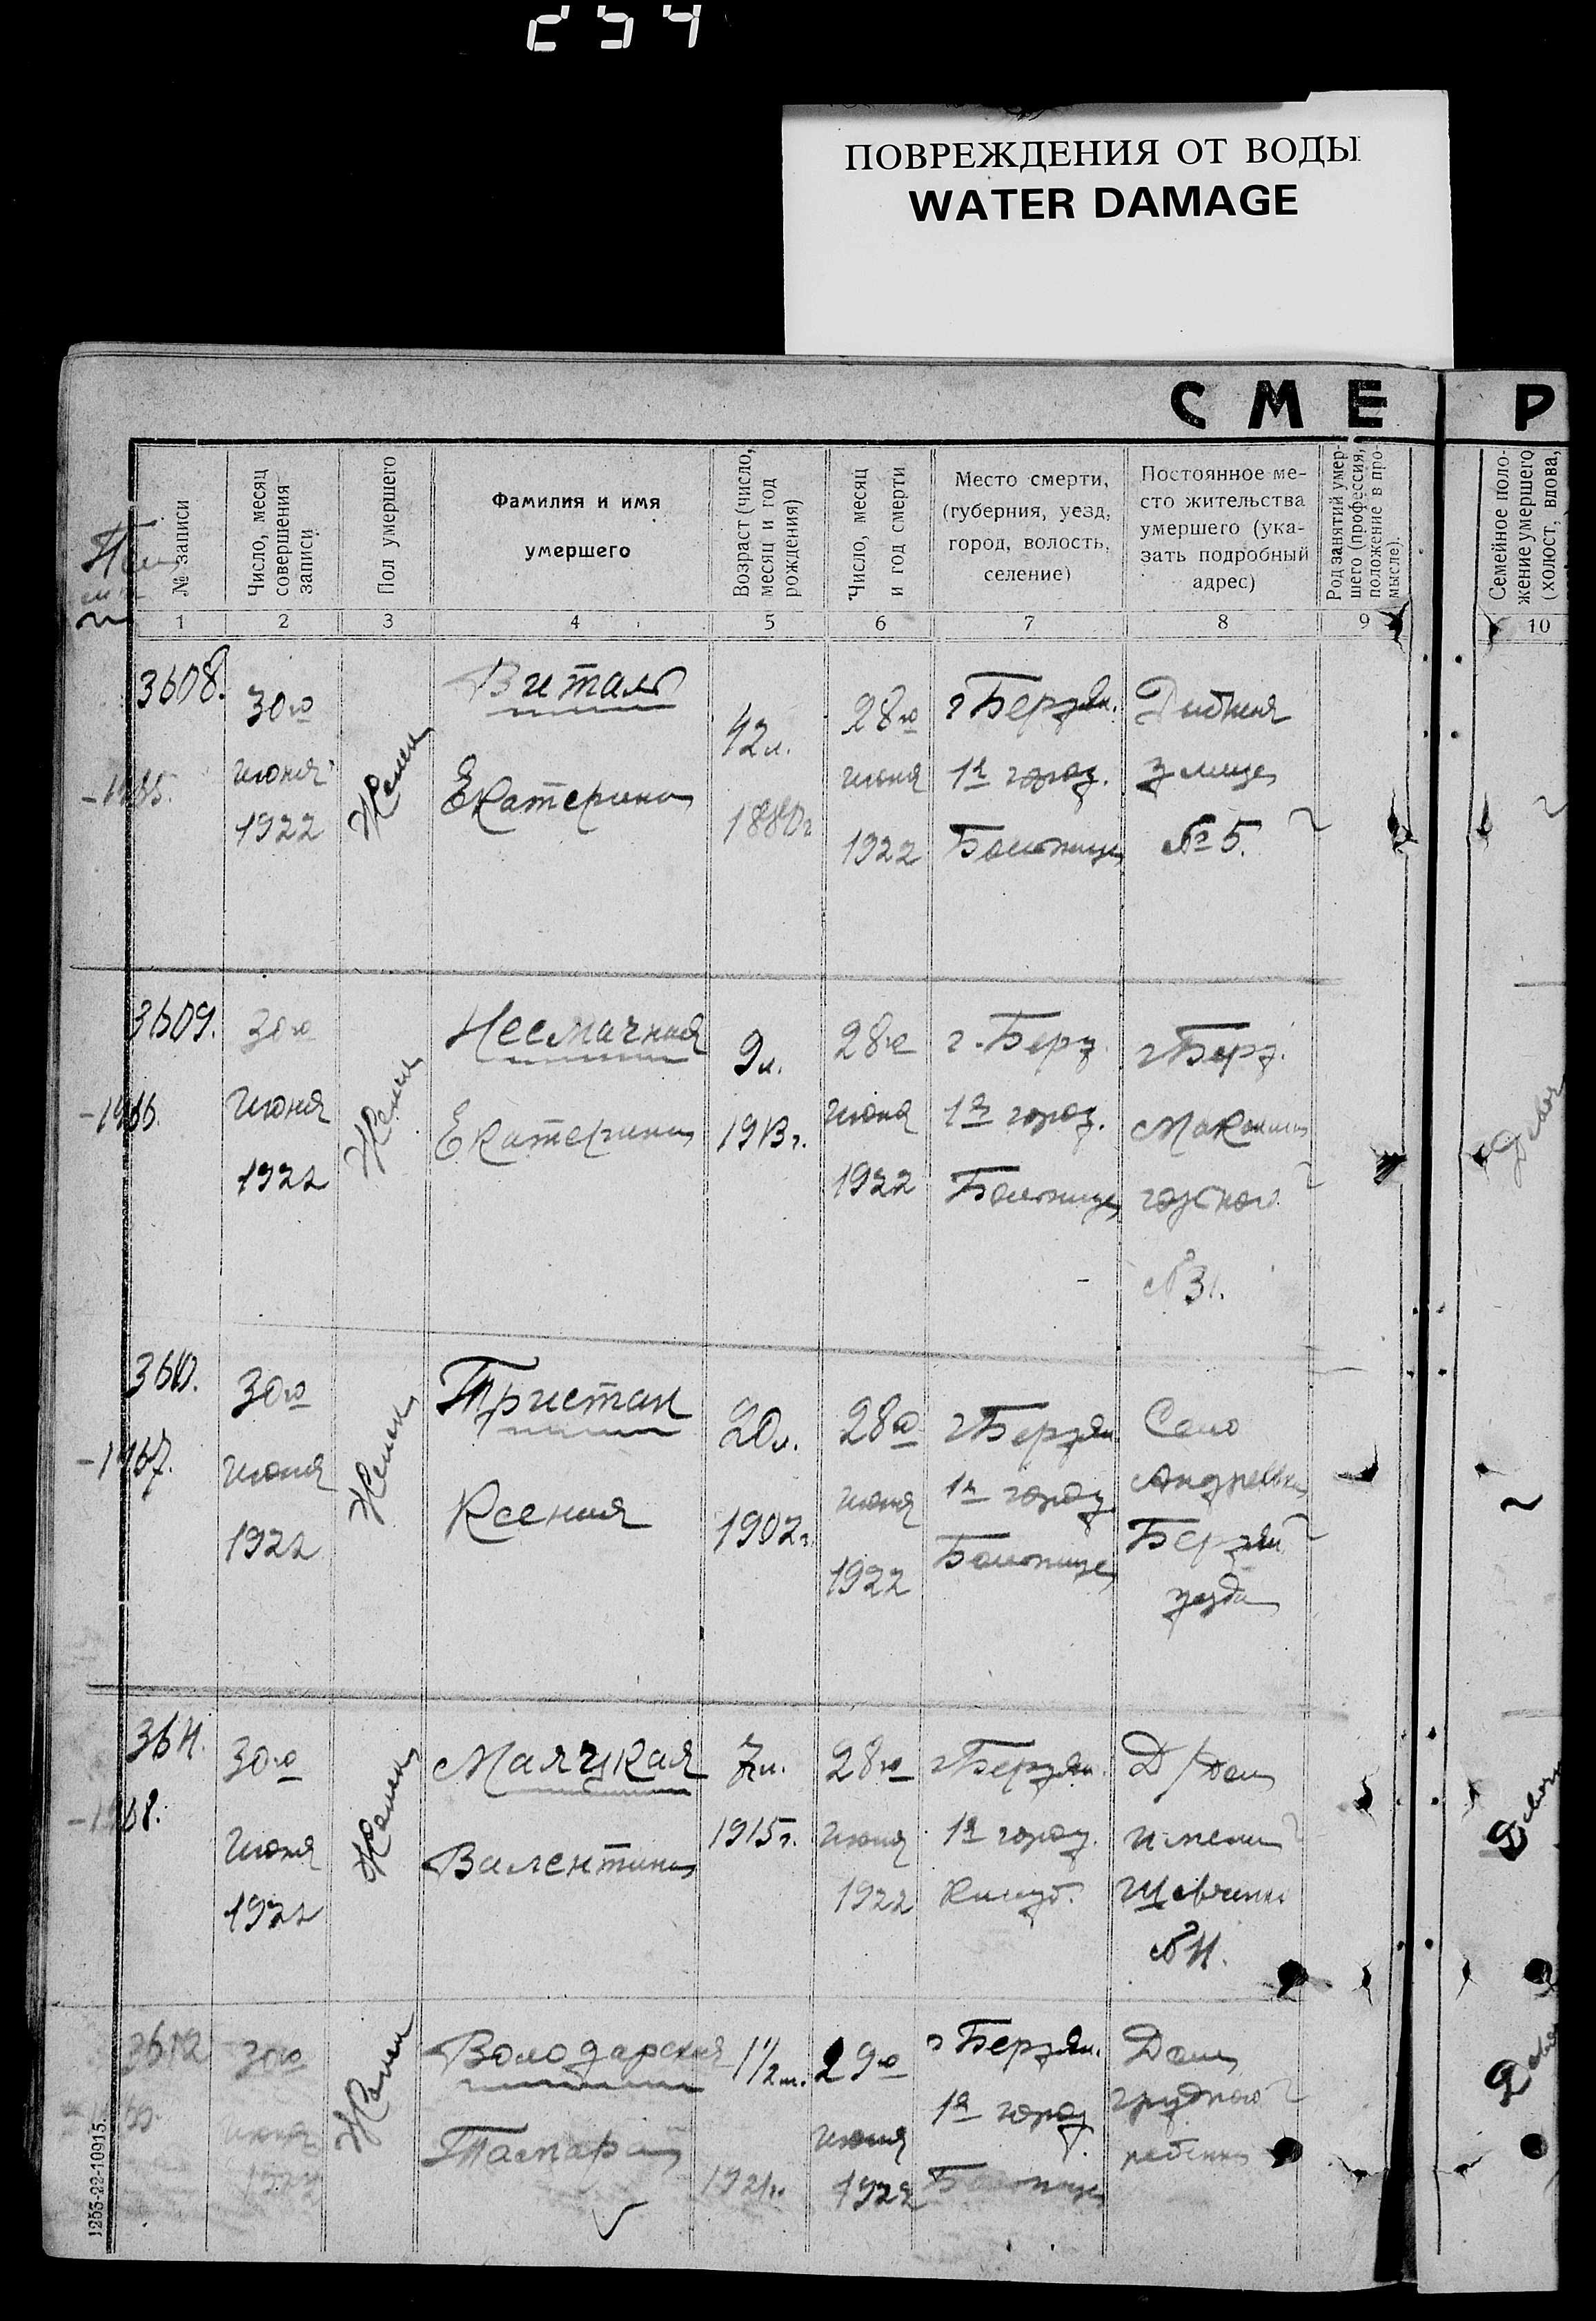 254
ПОВРЕЖДЕНИЯ ОТ ВОДЫ
WATER DAMAGE
СМЕ Р
№ записи
Число, месяц
совершения
записи
Пол умершего
Фамилия и имя
умершего
Возраст (число,
месяц и год
рождения)
Число, месяц
и год смерти
Место смерти,
(губерния, уезд,
город, волость,
селение)
Постоянное ме-
сто жительства
умершего (ука-
зать подробный
адрес)
Род занятий умер-
шего (профессия,
положение в про-
мысле).
Семейное поло-
жение умершего
(холост, вдова,
1 2 3 4 5 6 7 8 9 10
3608.
30го
июня
1922
Женск
Виталь
Екатерина
42л.
1880г
28го
июня
1922
г Бердян.
1я город.
Больница
улица
№ 5.
3609.
30го
июня
1922
Женск
Несмачная
Екатерина
9л.
1913г.
28го
июня
1922
г. Берд.
1я город.
Больница
г Берд.
3610.
30го
июня
1922
Женск
Тристан
Ксения
20л.
1902г.
28го
июня
1922
г Бердян
1я город
Больница
Село
Андреевка
Бердян
уезда
3611.
30го
июня
1922
Женск
Маяцкая
Валентина
7л.
1915г.
28го
июня
1922
г Бердян.
1я город.
Д/дом
имени
Шевченко
№ 11.
3612
30го
июня
1922
Женск
Володарская
Тамара
1 1/2 г.
1921г.
29го
июня
1922
г Бердян.
1я город
Больница
Дом
грудного
ребенка
1253-22-10915.